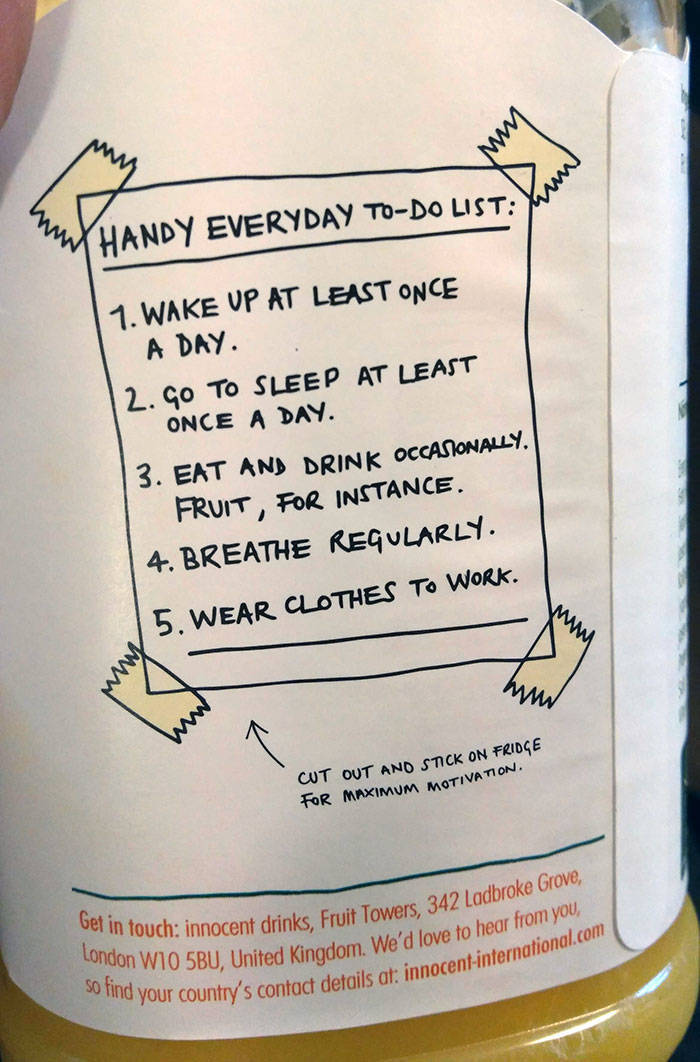 HANDY EVERYDAY TO-DO LIST:
1. WAKE UP AT LEAST ONCE
A DAY.
2. GO TO SLEEP AT LEAST
ONCE A DAY.
3. EAT AND DRINK OCCASIONALLY.
FRUIT, FOR INSTANCE.
4. BREATHE REGULARLY.
5. WEAR CLOTHES TO WORK.
CUT OUT AND STICK ON FRIDGE
FOR MAXIMUM MOTIVATION.
Get in touch: innocent drinks, Fruit Towers, 342 Ladbroke Grove,
London W10 5BU, United Kingdom. We'd love to hear from you,
so find your country's contact details at: innocent-international.com